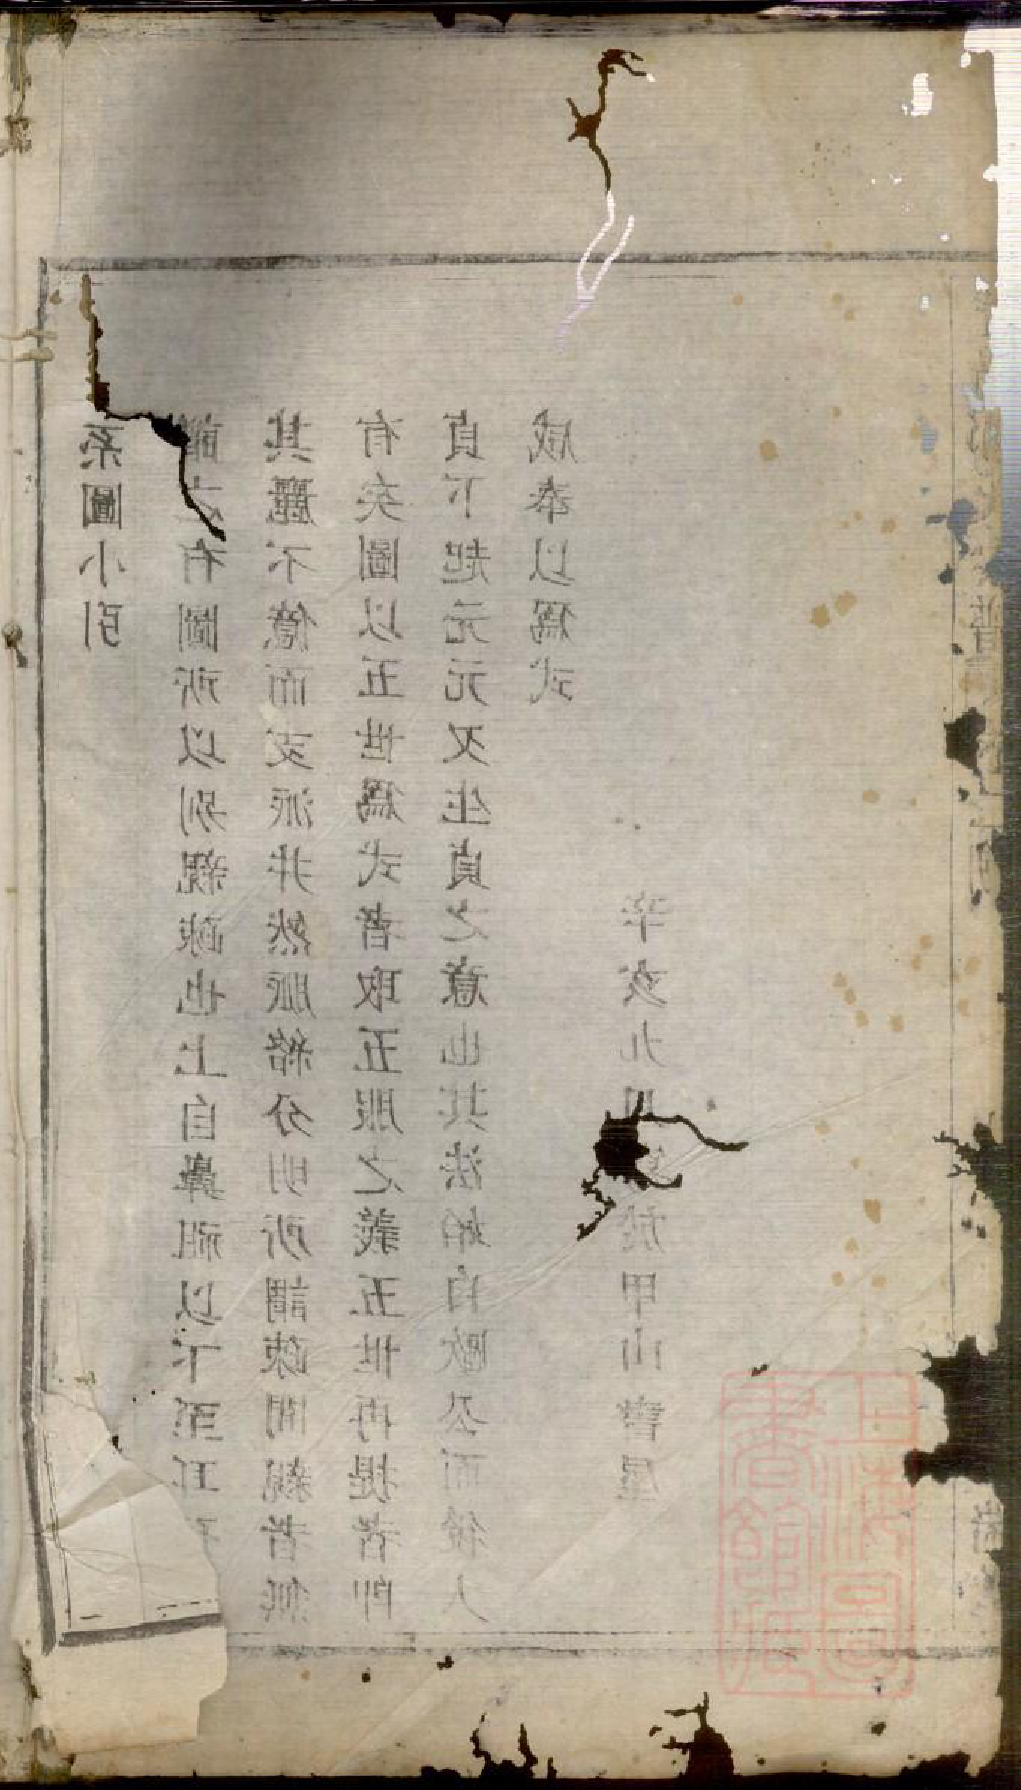 系圖小引
譜之有圖所以別親疎也上自鼻祖以下至耳
其麗不億而支派井然脈絡分明所謂疎間親者無
有矣圖以五世爲式者取五服之義五世再提者卽
貞下起元元又生貞之意也其法始自歐公而後人
咸奉以爲式
辛亥九月於甲山書屋
上海圖書館藏